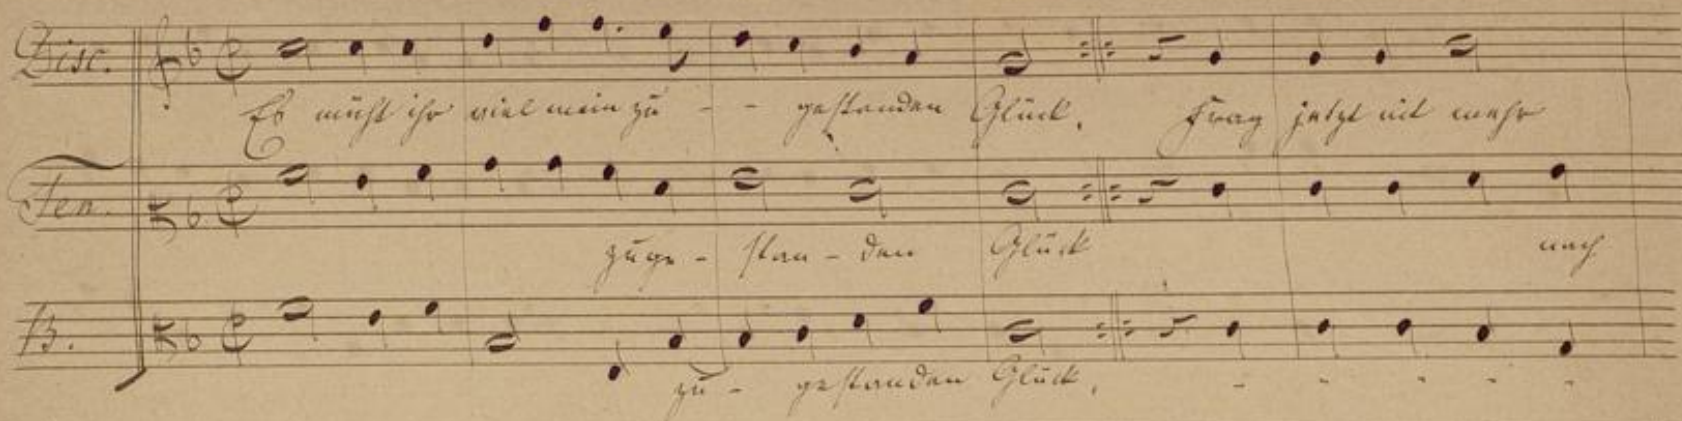 Disc.
Es mücht ihr viel mein zu - - gestanden Glück. Frag jetzt nit mehr
Ten.
zuge - stan - den Glück nach
B.
zu - gestanden Glück. - - - - -